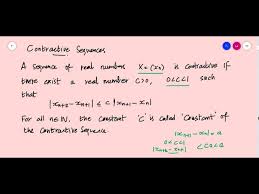 Contractive Sequences
A sequence of real numbers X=(xn) is contractive if
there exist a real number C>0, 0<C<1 such
that
|xn+2-xn+1| ≤ C |xn+1-xn|
For all n∈IN, the constant 'C' is called 'Constant' of
the Contractive Sequence.
|xn+1-xn| = a
0<C<1
|xn+2-xn+1| ≤ Ca<a